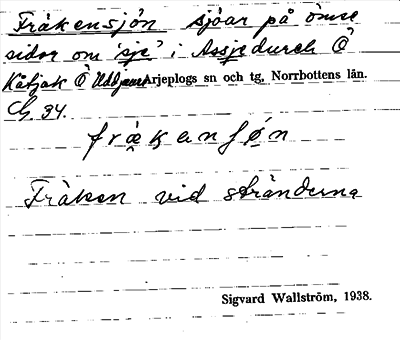 Fräkensjön sjöar på ömse
sidor om 'sje' i Assjedurek Ö
Kåtjak Ö Uddjaur Arjeplogs sn och tg, Norrbottens län.
Ch. 34.
Fräken vid stränderna
Sigvard Wallström, 1938.